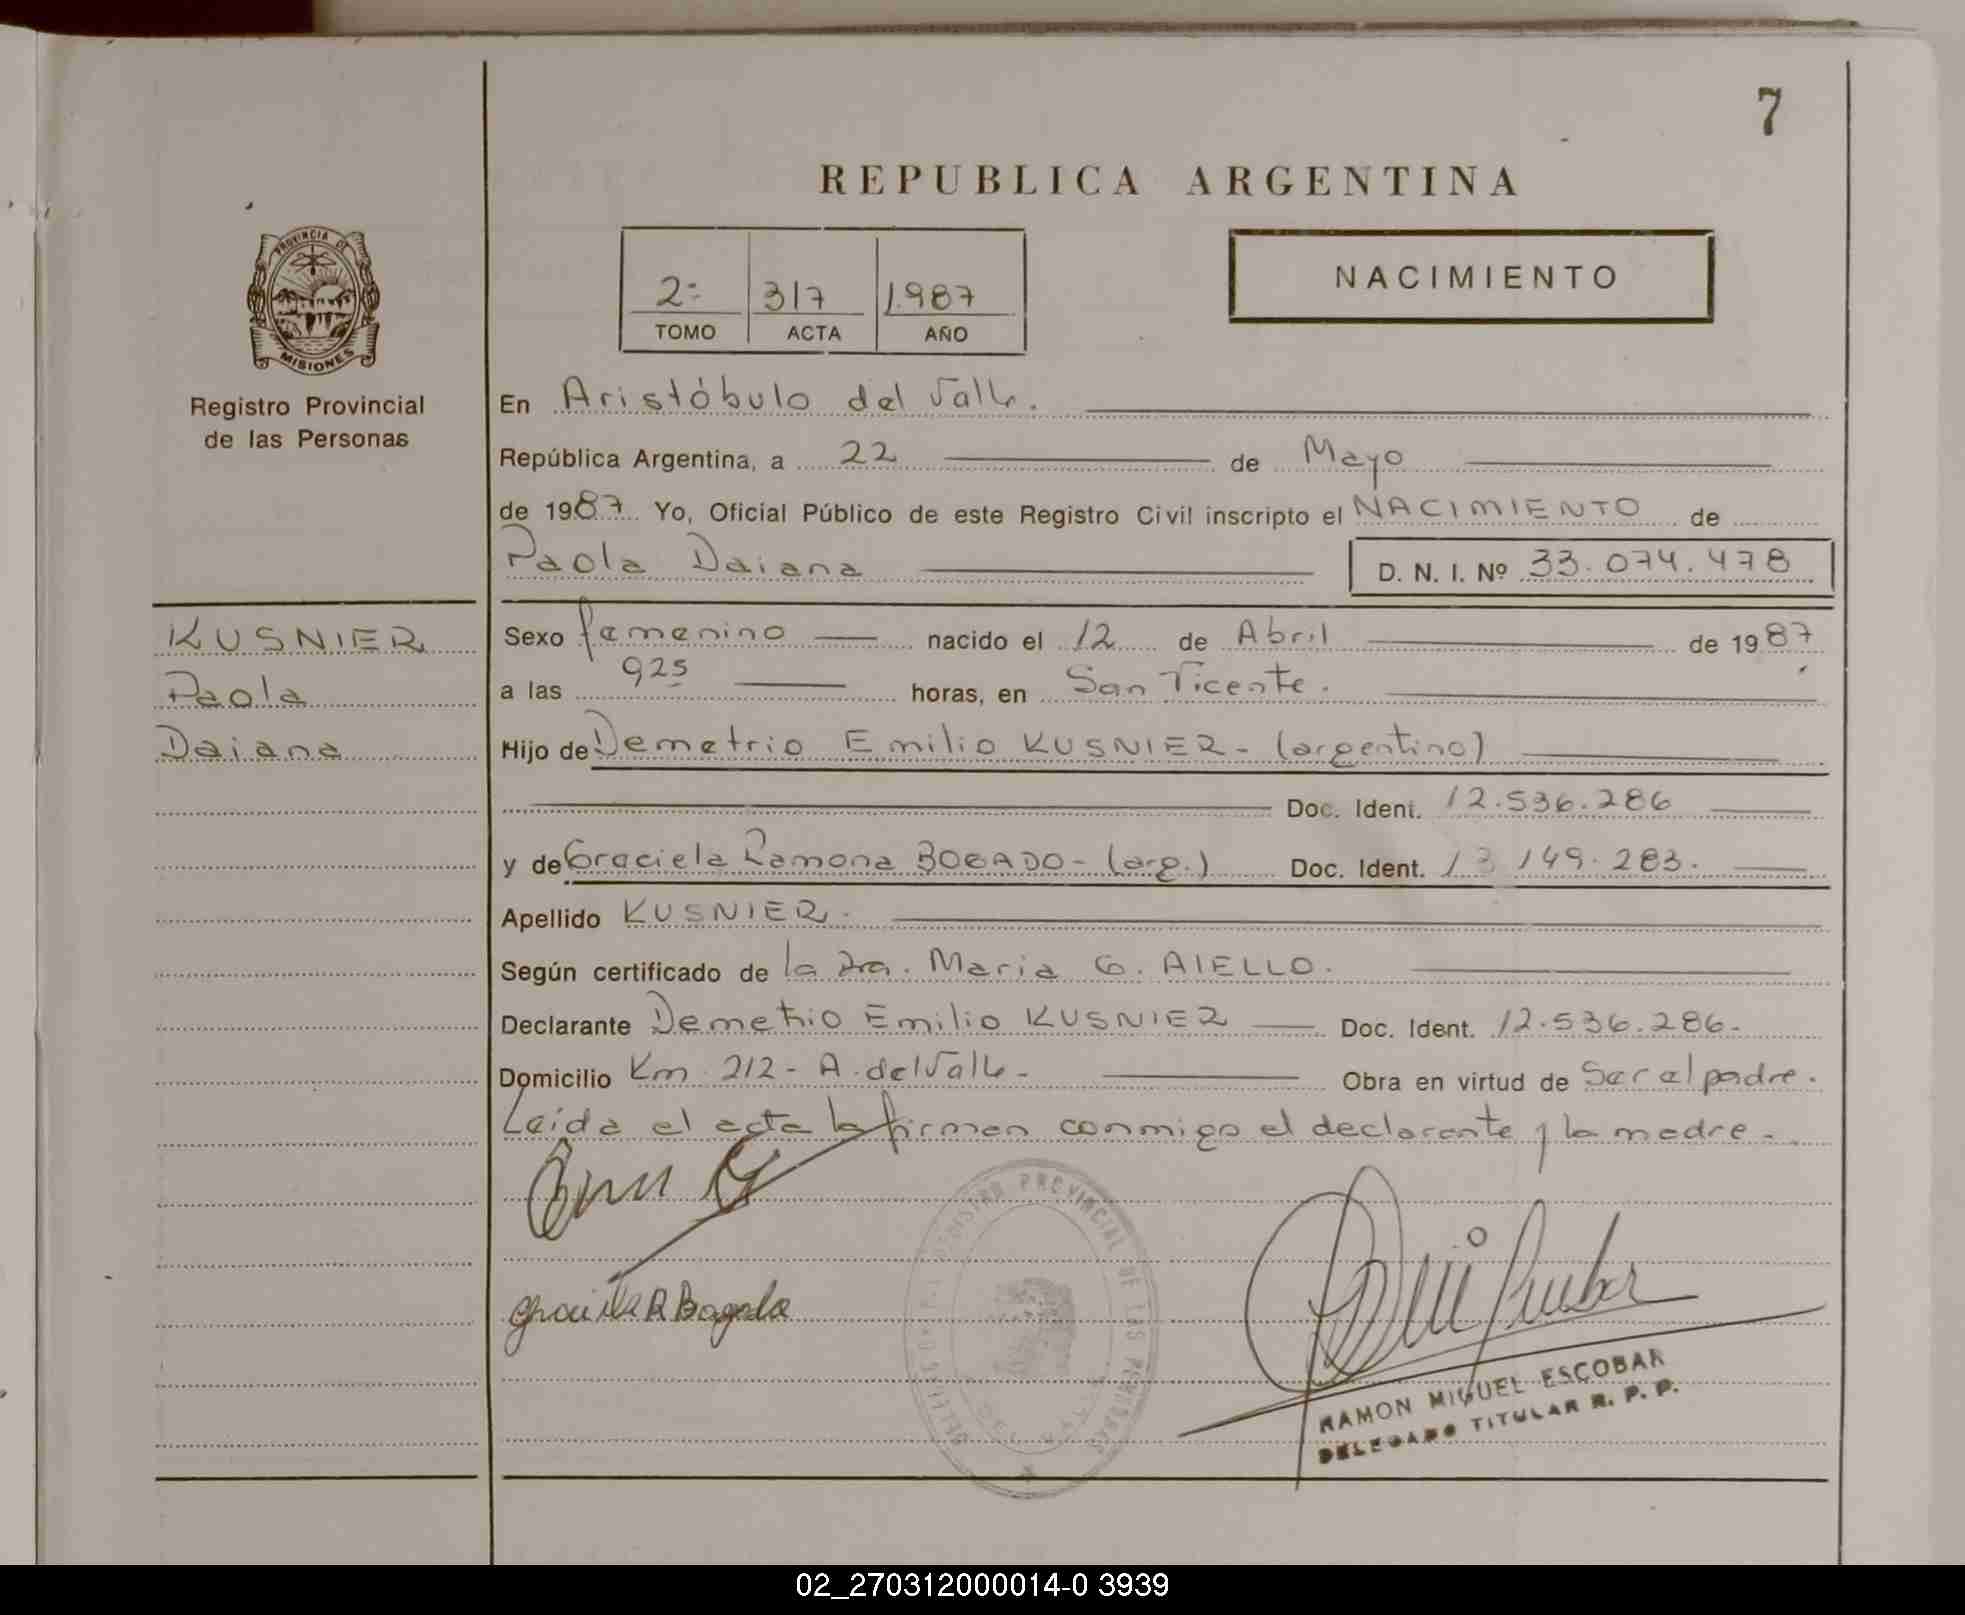 7
REPUBLICA ARGENTINA
PROVINCIA DE
MISIONES
Registro Provincial
de las Personas
2º 317 1.987
TOMO ACTA AÑO
NACIMIENTO
En Aristóbulo del Valle.
República Argentina, a 22 de Mayo
de 1987 Yo, Oficial Público de este Registro Civil inscripto el NACIMIENTO de
Paola Daiana D. N. I. Nº 33.074.478
KUSNIER
Paola
Daiana
Sexo femenino nacido el 12 de Abril de 1987
a las 925 horas, en San Vicente.
Hijo de Demetrio Emilio KUSNIER - (argentino)
Doc. Ident. 12.536.286
y de Graciela Ramona BOGADO - (arg.) Doc. Ident. 13.149.283.
Apellido KUSNIER.
Según certificado de la Dra. Maria G. AIELLO.
Declarante Demetrio Emilio KUSNIER Doc. Ident. 12.536.286.
Domicilio Km. 212 - A. del Valle - Obra en virtud de Ser el padre.
Leída el acta la firman conmigo el declarante y la madre.
Graciela R Bogado
REGISTRO PROVINCIAL DE LAS PERSONAS
RAMON MIGUEL ESCOBAR
DELEGADO TITULAR R. P. P.
02_270312000014-0 3939